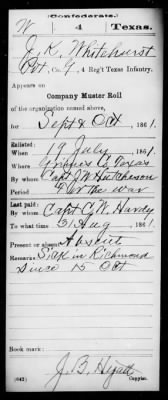 (Confederate.)
W 4 Texas.
J. K. Whitehurst
Pvt, Co. G, 4 Reg't Texas Infantry.
Appears on
Company Muster Roll
of the organization named above,
for Sept & Oct, 1861.
Enlisted:
When 19 July, 1861.
Where Grimes Co Texas
By whom Capt J W Hutcheson
Period For the war
Last paid:
By whom Capt C. W. Hardy
To what time 31 Aug, 1861.
Present or absent Absent
Remarks: Sick in Richmond
since 15 Oct
Book mark:
J. B. Hyatt
(642) Copyist.